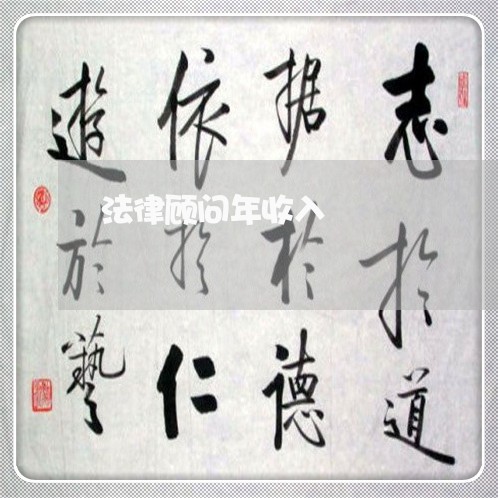 志於道
据於德
依於仁
遊於藝
法律顾问年收入